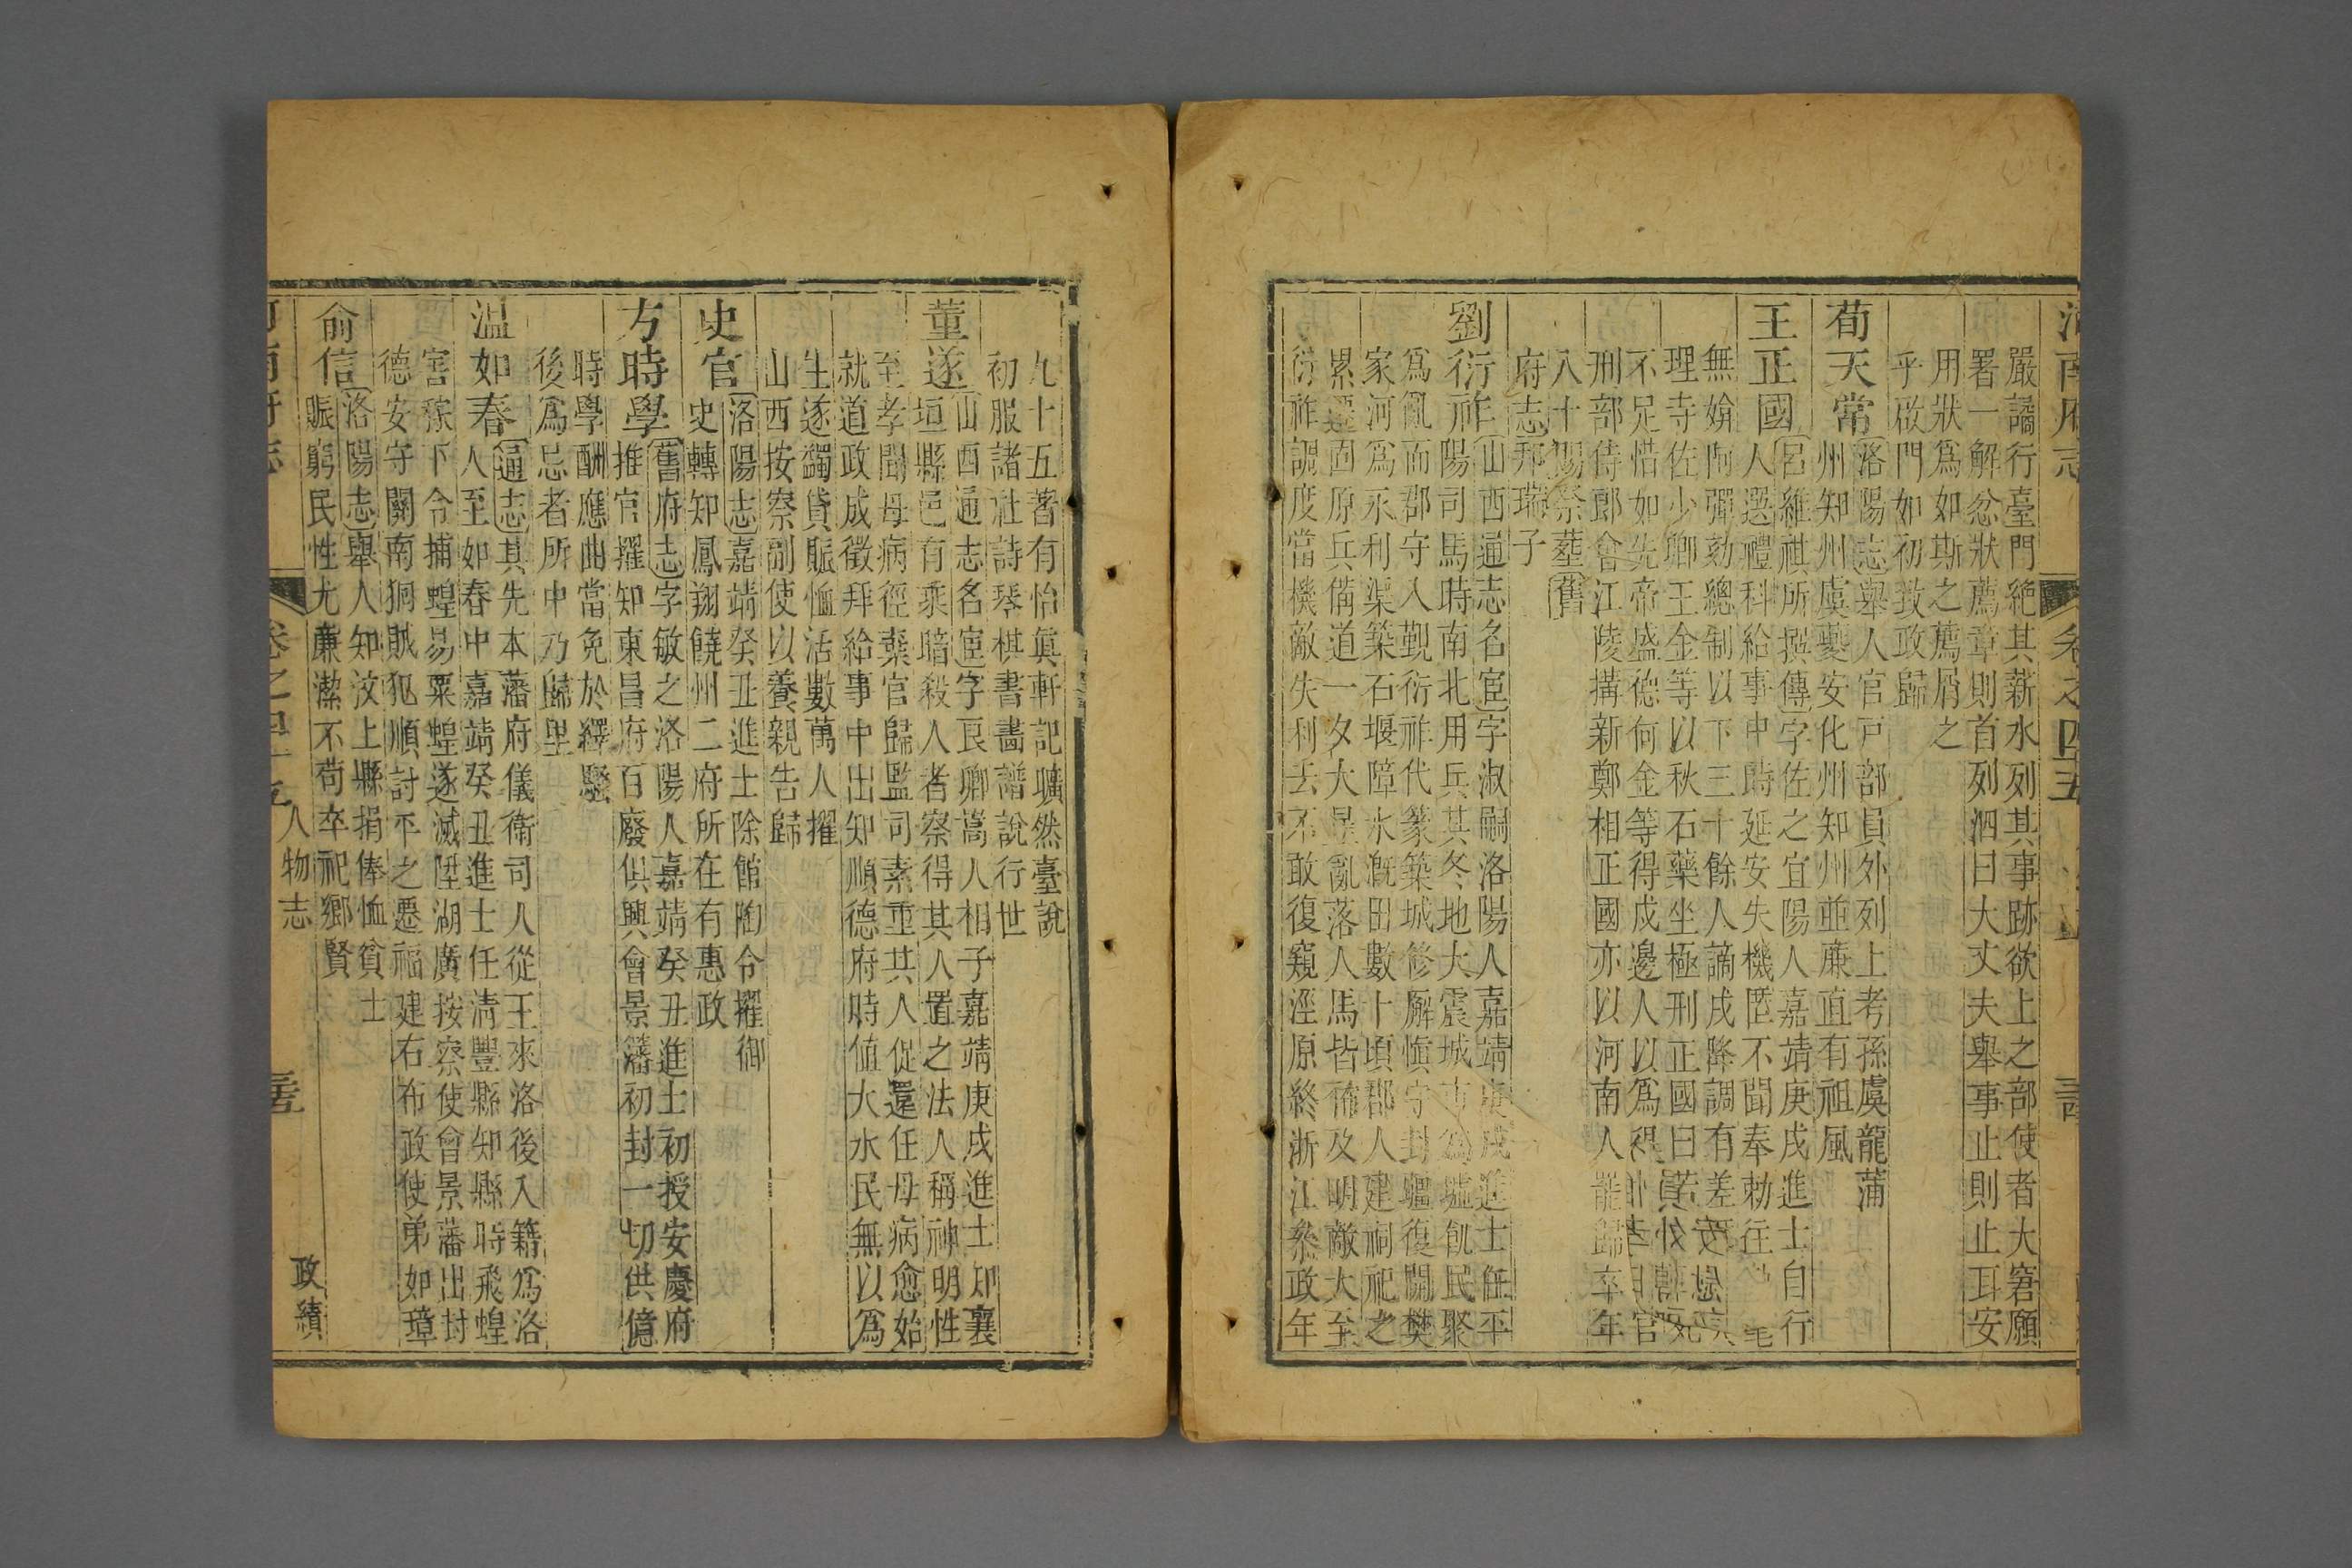 河南府志 卷之四十五
嚴譎行臺門絶其薪水列其事跡欲上之部使者大窘願
署一解忿狀薦章則首列泗曰大丈夫舉事止則止耳安
用狀爲如斯之薦屑之
乎啟門如初致政歸
荀天常洛陽志舉人官戸部員外列上考孫虞龍蒲
州知州虞夔安化州知州並廉直有祖風
王正國呂維祺所撰傳字佐之宜陽人嘉靖庚戌進士自行
人選禮科給事中時延安失機匿不聞奉勅往
無媕阿彈劾總制以下三十餘人謫戍降調有差
理寺佐少卿王金等以秋石藥坐極刑正國曰
不足惜如先帝盛德何金等得戍邊人以爲
刑部侍郎會江陵搆新鄭相正國亦以河南人罷歸卒年
八十賜祭葬舊
府志邦瑞子
劉衍祚山西通志名宦字淑嗣洛陽人嘉靖庚戌進士任平
陽司馬時南北用兵其冬地大震城市爲墟飢民聚
爲亂而郡守入覲衍祚代篆築城修廨慎守封疆復開樊
家河爲永利渠築石堰障水漑田數十頃郡人建祠祀之
累遷固原兵備道一夕大星亂落人馬皆怖及明敵大至
衍祚調度當機敵失利去不敢復窺涇原終浙江叅政年
九十五著有怡眞軒記曠然臺說
初服諸社詩琴棋書畵譜說行世
董遂山西通志名宦字良卿嵩人相子嘉靖庚戌進士知襄
垣縣邑有乘暗殺人者察得其人置之法人稱神明性
至孝聞母病徑棄官歸監司素重其人促還任母病愈始
就道政成徵拜給事中出知順德府時値大水民無以爲
生遂蠲貸賑恤活數萬人擢
山西按察副使以養親告歸
史官洛陽志嘉靖癸丑進士除館陶令擢御
史轉知鳳翔饒州二府所在有惠政
方時學舊府志字敏之洛陽人嘉靖癸丑進士初授安慶府
推官擢知東昌府百廢俱興會景藩初封一切供億
時學酬應曲當免於繹騷
後爲忌者所中乃歸里
溫如春通志其先本藩府儀衛司人從王來洛後入籍爲洛
人至如春中嘉靖癸丑進士任淸豐縣知縣時飛蝗
害稼下令捕蝗易粟蝗遂滅陞湖廣按察使會景藩出封
德安守關南狪賊犯順討平之遷福建右布政使弟如璋
俞信洛陽志舉人知汶上縣捐俸恤貧士
賑窮民性尤廉潔不苟卒祀鄉賢
河南府志 卷之四十五 人物志 政績